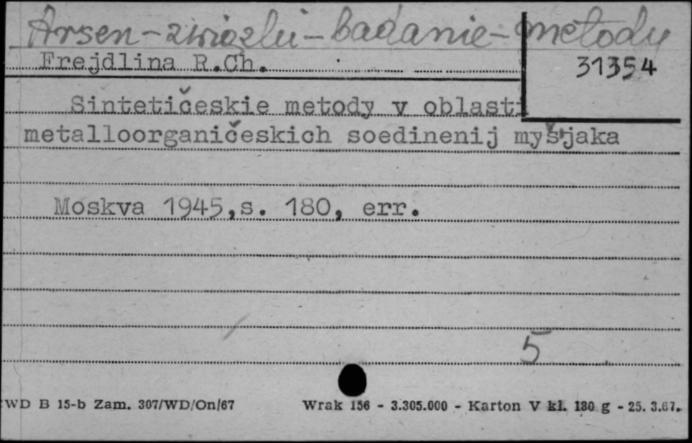 Arsen-związki-badanie-metody
Frejdlina R.Ch.
31354
Sintetičeskie metody v oblasti
metalloorganičeskich soedinenij myš'jaka
Moskva 1945,s. 180, err.
5
WD B 15-b Zam. 307/WD/On/67 Wrak 156 - 3.305.000 - Karton V kl. 180 g - 25. 3.67.